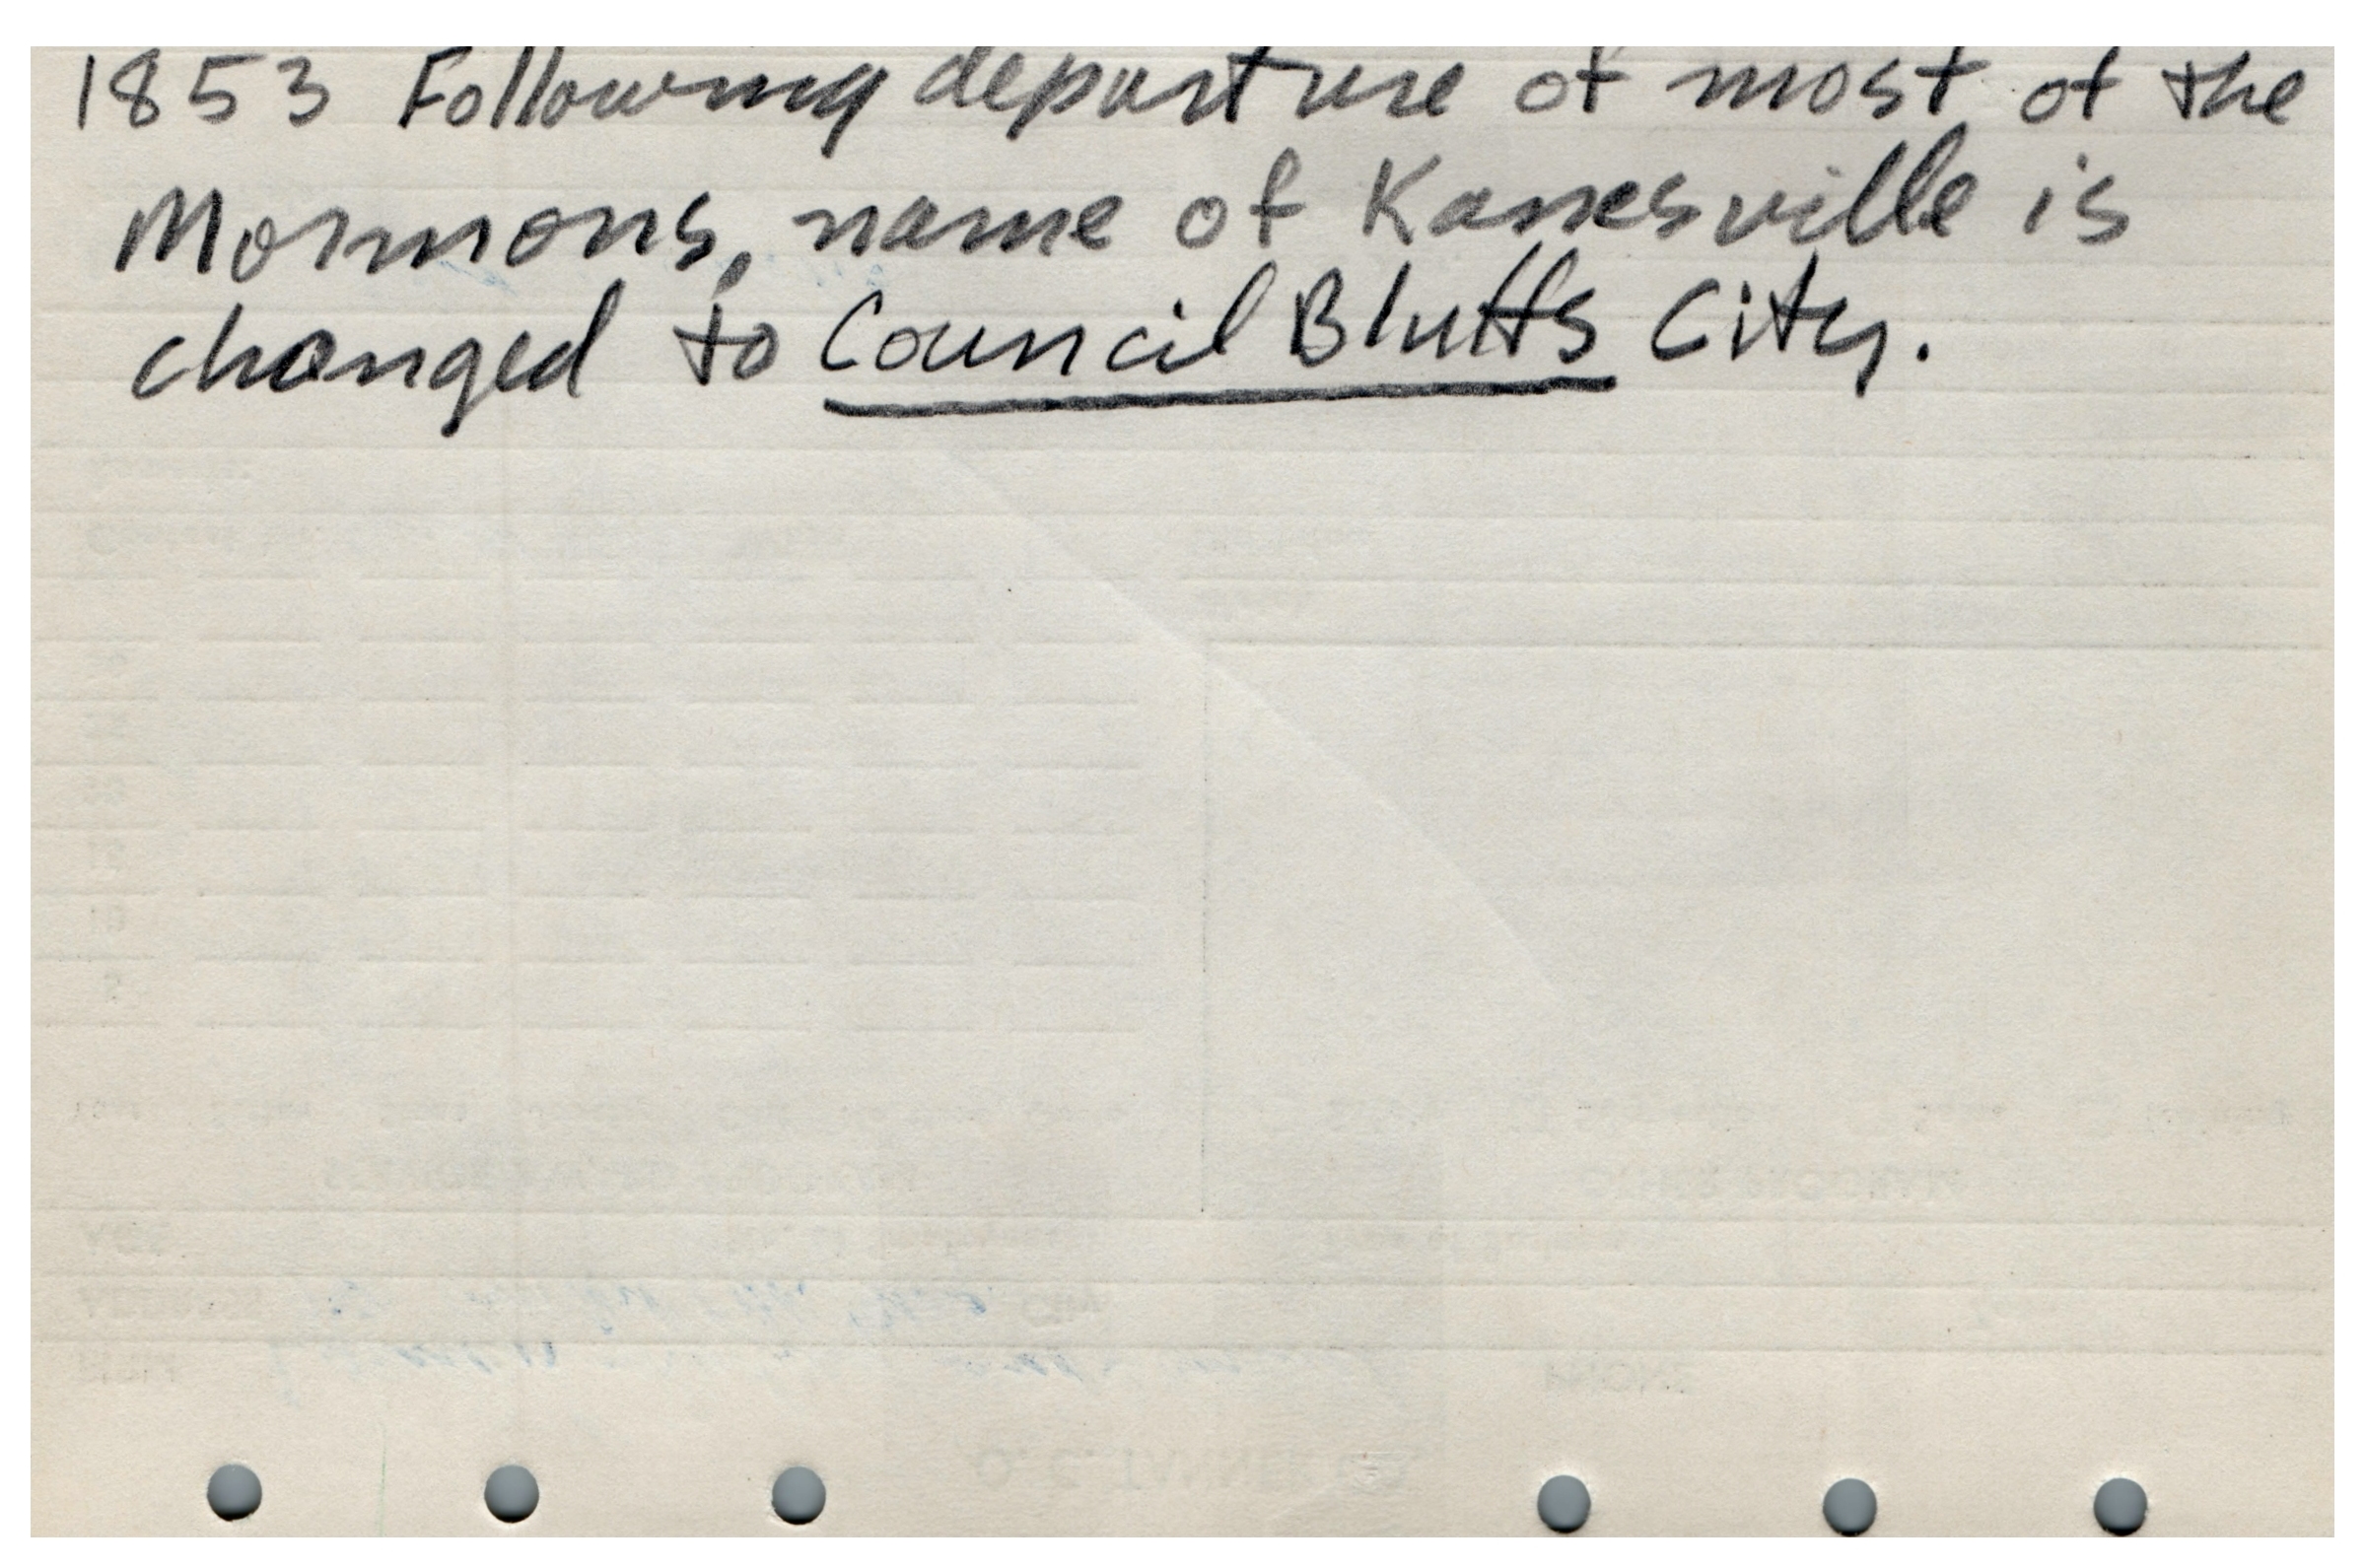 1853 Following departure of most of the
Mormons, name of Kanesville is
changed to Council Bluffs City.